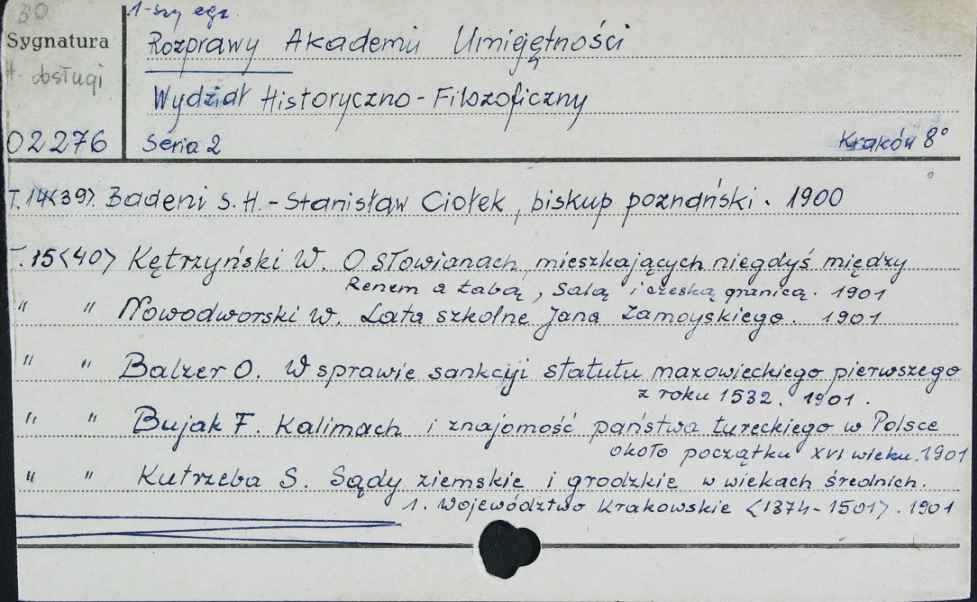 30
1-szy egz.
Sygnatura
Rozprawy Akademii Umiejętności
H. obsługi
Wydział Historyczno-Filozoficzny
02276 Seria 2 Kraków 8°
T. 14<39>. Badeni S. H. - Stanisław Ciołek, biskup poznański. 1900
T. 15<40> Kętrzyński W. O Słowianach mieszkających niegdyś między
Renem a Łabą, Salą i czeską granicą. 1901
" " Nowodworski W. Lata szkolne Jana Zamoyskiego. 1901
" " Balzer O. W sprawie sankcyji statutu mazowieckiego pierwszego
z roku 1532. 1901.
" " Bujak F. Kalimach i znajomość państwa tureckiego w Polsce
około początku XVI wieku. 1901
" " Kutrzeba S. Sądy ziemskie i grodzkie w wiekach średnich.
1. Województwo Krakowskie <1374-1501>. 1901